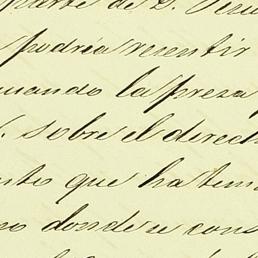 parte de D.
podria resentir
cuando la presa
sobre el derech
nto que ha ten
no donde se cons